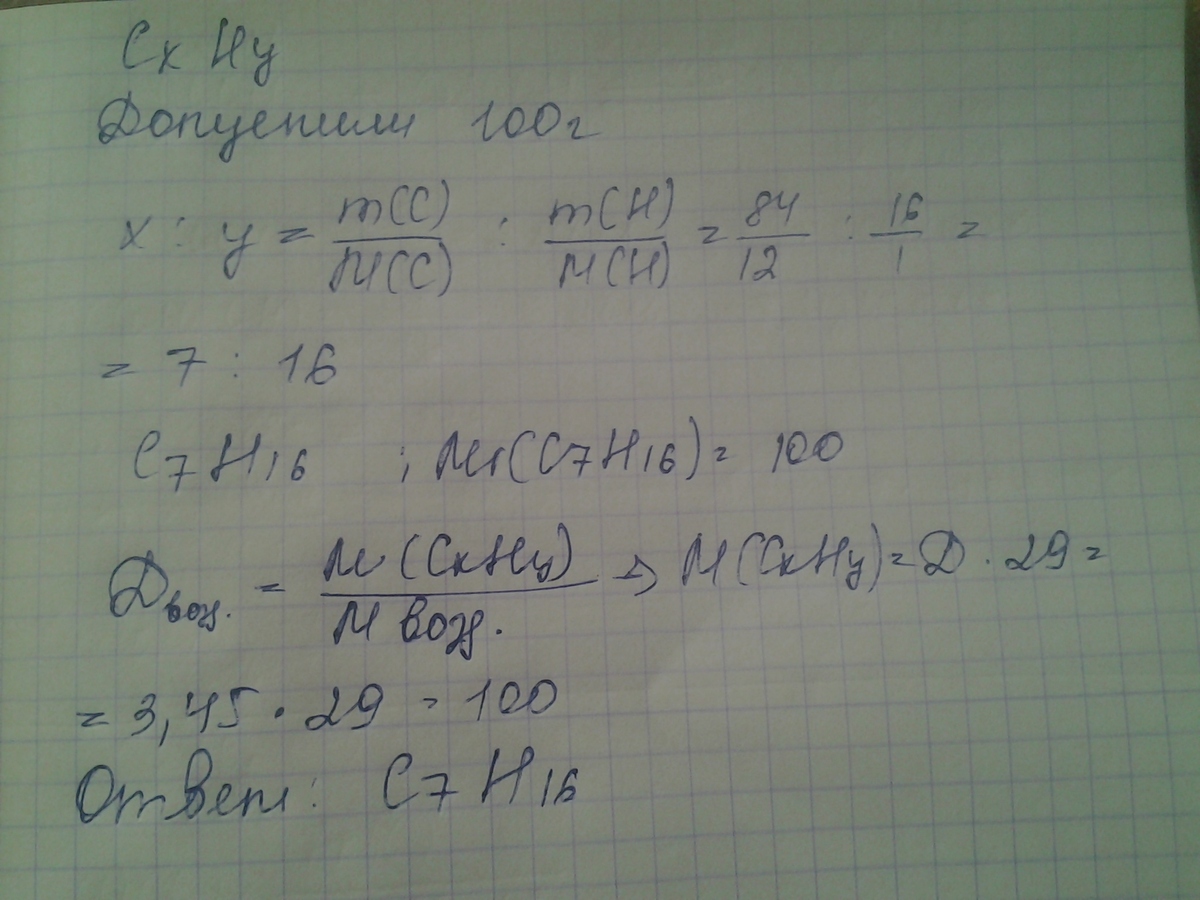 CxHy
Допустили 100г
x : y = m(C)/M(C) : m(H)/M(H) = 84/12 : 16/1 =
= 7 : 16
C7H16 ; Mr(C7H16) = 100
Dвозд. = M(CxHy)/M возд. => M(CxHy) = D · 29 =
= 3,45 · 29 = 100
Ответ: C7H16